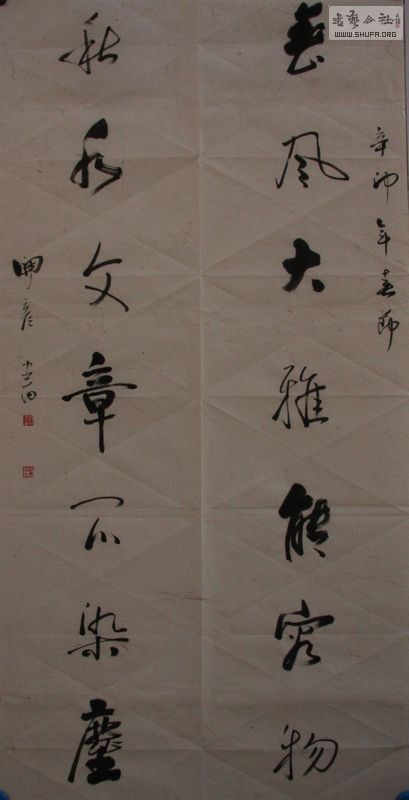 書藝公社
WWW.SHUFA.ORG
辛卯年春節
春風大雅能容物
秋水文章不染塵